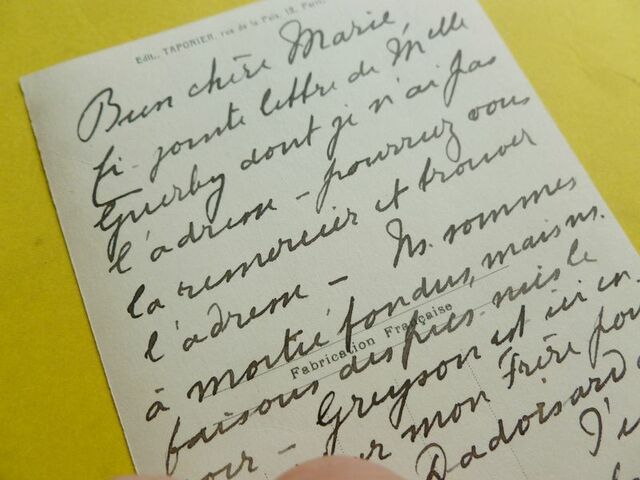 Edit. TAPONIER, rue de la Paix, 12, Paris.
Bien chère Marie,
Ci-jointe lettre de Melle
Guerby dont je n'ai pas
l'adresse - pourriez vous
la remercier et trouver
l'adresse - Ns. sommes
à moitié fondus, mais ns.
Fabrication Française
faisons des
- Greyson est ici en
mon frère pour
Dadoisard
J'e